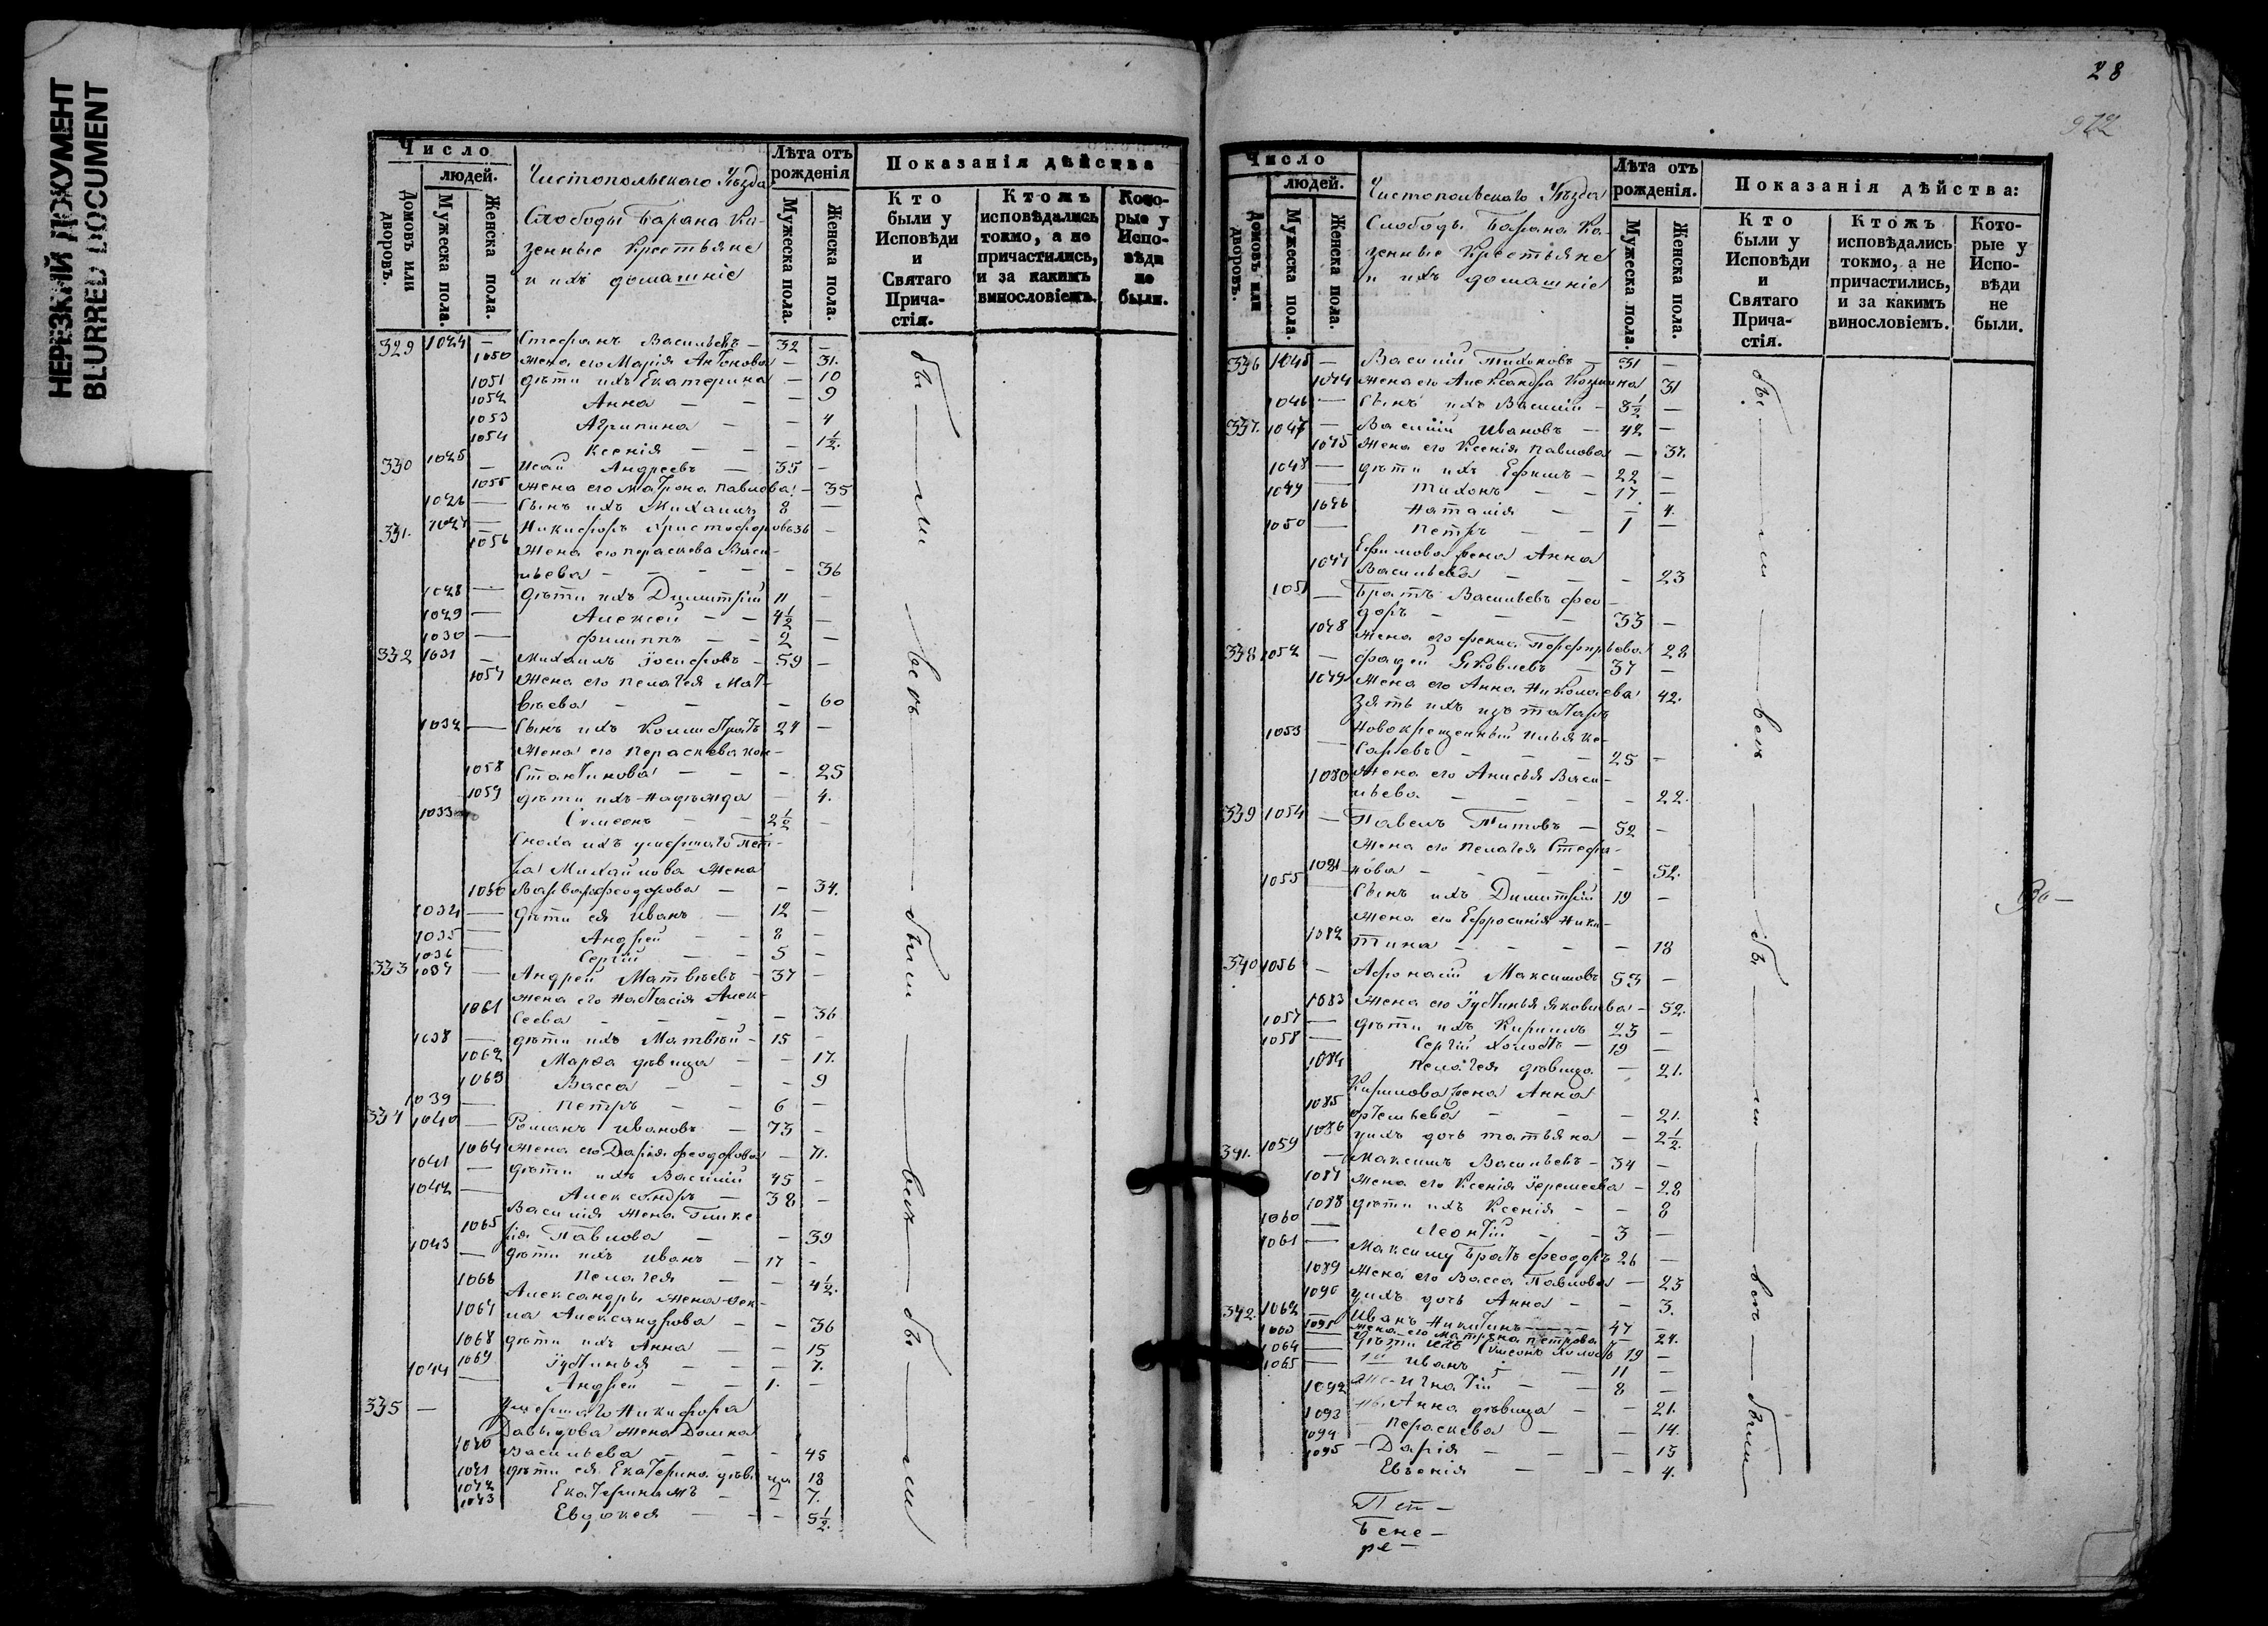 НЕРЕЗКИЙ ДОКУМЕНТ
BLURRED DOCUMENT
Число
людей.
Домовъ или дворовъ.
Мужеска пола.
Женска пола.
Чистопольскаго Уѣзда
Слободы Барана Ка-
зенные Крестьяне
и ихъ домашніе
Лѣта отъ рожденія
Мужеска пола.
Женска пола.
Показанія дѣйства
Кто были у Исповѣди и Святаго Прича- стія.
Ктожъ исповѣдались токмо, а не причастились, и за какимъ винословіемъ.
Кото- рые у Испо- вѣди не были.
329 1024 — Стефанъ Васильевъ — 32 —
1050 жена его Марія Антонова — 31.
1051 дѣти ихъ Екатерина — 10
1052 Анна — — — 9
1053 Агрипина — — 4
1054 Ксенія — — — 1½.
330 1025 — Исай Андреевъ — 35 —
1055 жена его Матрона Павлова — 35
1026 — Сынъ ихъ Михаилъ 8 —
331. 1027 — Никифоръ Христофоровъ 36 —
1056 Жена его Пераскева Васи-
льева — — — — — 36
1028 — дѣти ихъ Димитрій 11 —
1029 — Алексей — — 4½ —
1030 — Филиппъ — — 2 —
332 1031 — Михаилъ Іосифовъ — 59 —
1057 Жена его Пелагея Мат-
вѣева — — — 60
1032 — Сынъ ихъ Каллистратъ 24 —
Жена его Пераскева Кон-
1058 стантинова — — — 25
1059 дѣти ихъ Надежда — 4.
1033 Симеонъ — — 2½ —
Сноха ихъ умершаго Пет-
ра Михайлова Жена
1060 Варвара Феодорова — — 34.
1034 — дѣти ея Иванъ — 12 —
1035 — Андрей — — 8 —
1036 — Сергій — — 5 —
333 1037 — Андрей Матвѣевъ — 37 —
жена его Настасія Алек-
1061 сеева — — — — 36
1038 — дѣти ихъ Матвѣй — 15 —
1062 Марѳа дѣвица — — 17.
1063 Васса — — — 9
1039 — Петръ — — 6 —
334 1040 — Романъ Ивановъ — 73 —
1064 Жена его Дарія Феодорова — 71.
1041 — дѣти ихъ Василій 45 —
1042 — Александръ — 38 —
Василія Жена Глике-
1065 рія Павлова — — 39
1043 — дѣти ихъ Иванъ — 17 —
1066 Пелагея — — 4½.
Александры Жена Фек-
1067 ла Александрова — — 36
1068 дѣти ихъ Анна — — 15
1069 Іустинья — — — 7.
1044 — Андрей — — 1. —
335 — Умершаго Никифора
Давыдова Жена Домна
1070 Васильева — — — 45
1071 дѣти ея Екатерина дѣвица 18
1072 Екатерина жъ — — 7.
1073 Евдокея — — — 5½.
бы — ли — всѣ — были — всѣ — бы — ли
28
922
Число
людей.
Домовъ или дворовъ.
Мужеска пола.
Женска пола.
Чистопольскаго Уѣзда
Слободы Барана Ка-
зенные Крестьяне
и ихъ домашніе
Лѣта отъ рожденія.
Мужеска пола.
Женска пола.
Показанія дѣйства:
Кто были у Исповѣди и Святаго Прича- стія.
Ктожъ исповѣдались токмо, а не причастились, и за какимъ винословіемъ.
Кото- рые у Испо- вѣди не были.
336 1045 — Василій Тихоновъ — 31 —
1074 Жена его Александра Козмина 31
1046 — Сынъ ихъ Василій — 3½ —
337. 1047 — Василій Ивановъ — 42 —
1075 Жена его Ксенія Павлова — 37.
1048 — дѣти ихъ Ефимъ — 22 —
1049 — Тихонъ — — 17. —
1076 Наталія — — 4.
1050 — Петръ — — 1 —
Ефимова жена Анна
1077 Васильева — — — 23
1051 — Братъ Васильевъ Фео-
доръ — — — 33 —
1078 Жена его Фекла Порфирьева 28
338 1052 — Фадей Яковлевъ — 37 —
1079 Жена его Анна Николаева 42.
Зять ихъ изъ татаръ
1053 Новокрещенный Илья Ке-
саревъ — — — 25 —
1080 Жена его Анисья Васи-
льева — — — — 22.
339 1054 — Павелъ Титовъ — 52 —
Жена его Пелагея Стефа-
1081 нова — — — — 52.
1055 — Сынъ ихъ Димитрій 19 —
Жена его Ефросинія Ники-
1082 тина — — — — 18
340 1056 — Афонасій Максимовъ 53 —
1083 Жена его Іустинья Яковлева — 52.
1057 — дѣти ихъ Кирилъ 23 —
1058 — Сергій холостъ — 19 —
1084 Пелагея дѣвица — 21.
Кирилова жена Анна
1085 Артемьева — — — 21.
1086 у ихъ дочь Татьяна — 2½.
341. 1059 — Максимъ Васильевъ — 34 —
1087 Жена его Ксенія Іеремеева — 28
1088 дѣти ихъ Ксенія — — 8
1060 — Леонтій — — 3 —
1061 — Максиму Братъ Феодоръ 26 —
1089 Жена его Васса Павлова — 23
1090 у ихъ дочь Анна — — 3.
342. 1062 — Иванъ Никитинъ — 47 —
жена его Матрена Петрова — 24.
1064 — дѣти ихъ Симеонъ холостъ 19 —
1065 — Иванъ — 11 —
Игнатій — — 8 —
1092 Анна дѣвица — — 21.
1093 Пераскева — — 14.
1094 Дарія — — — 13
1095 Евгенія — — — 4.
бы — ли — всѣ — бы — ли — всѣ — были
Во —
Пет —
Бене —
ре —